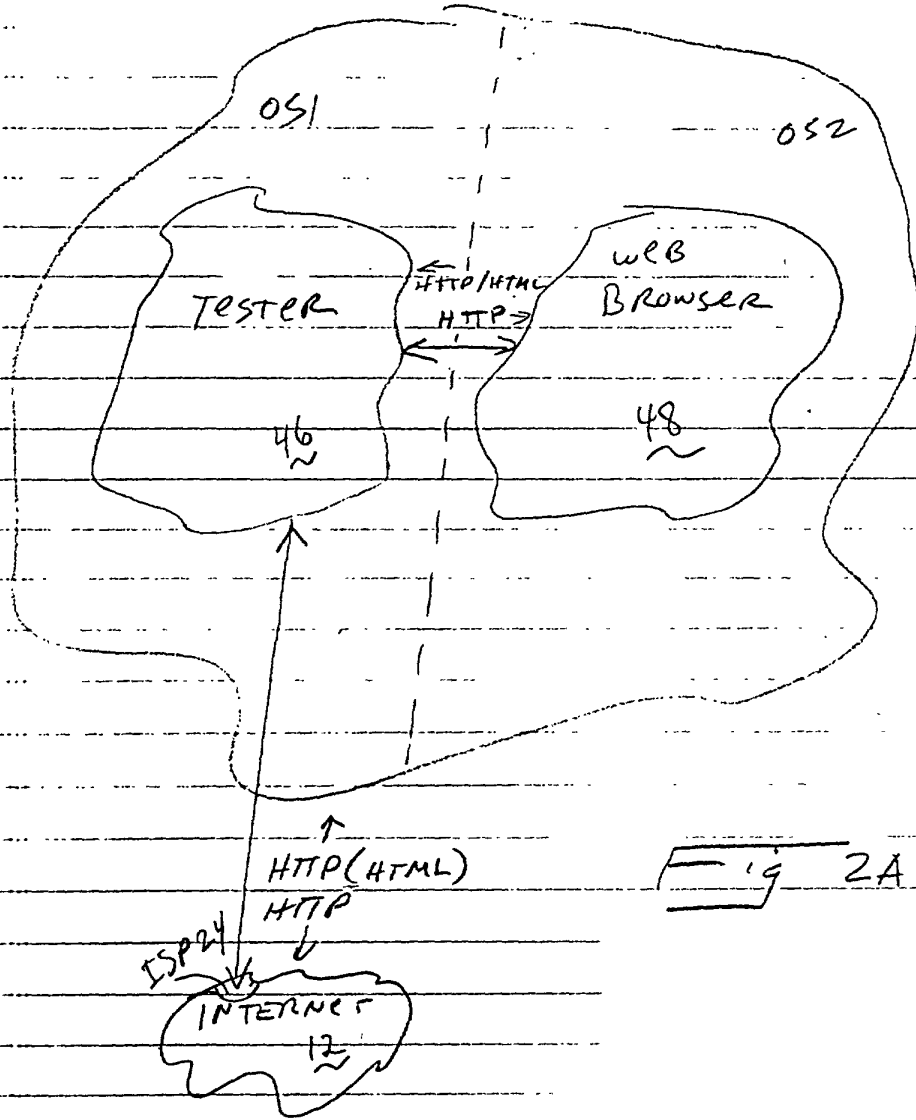 OS1
OS2
TESTER
46
HTTP/HTML
HTTP
WEB
BROWSER
48
HTTP(HTML)
HTTP
ISP24
INTERNET
12
Fig 2A